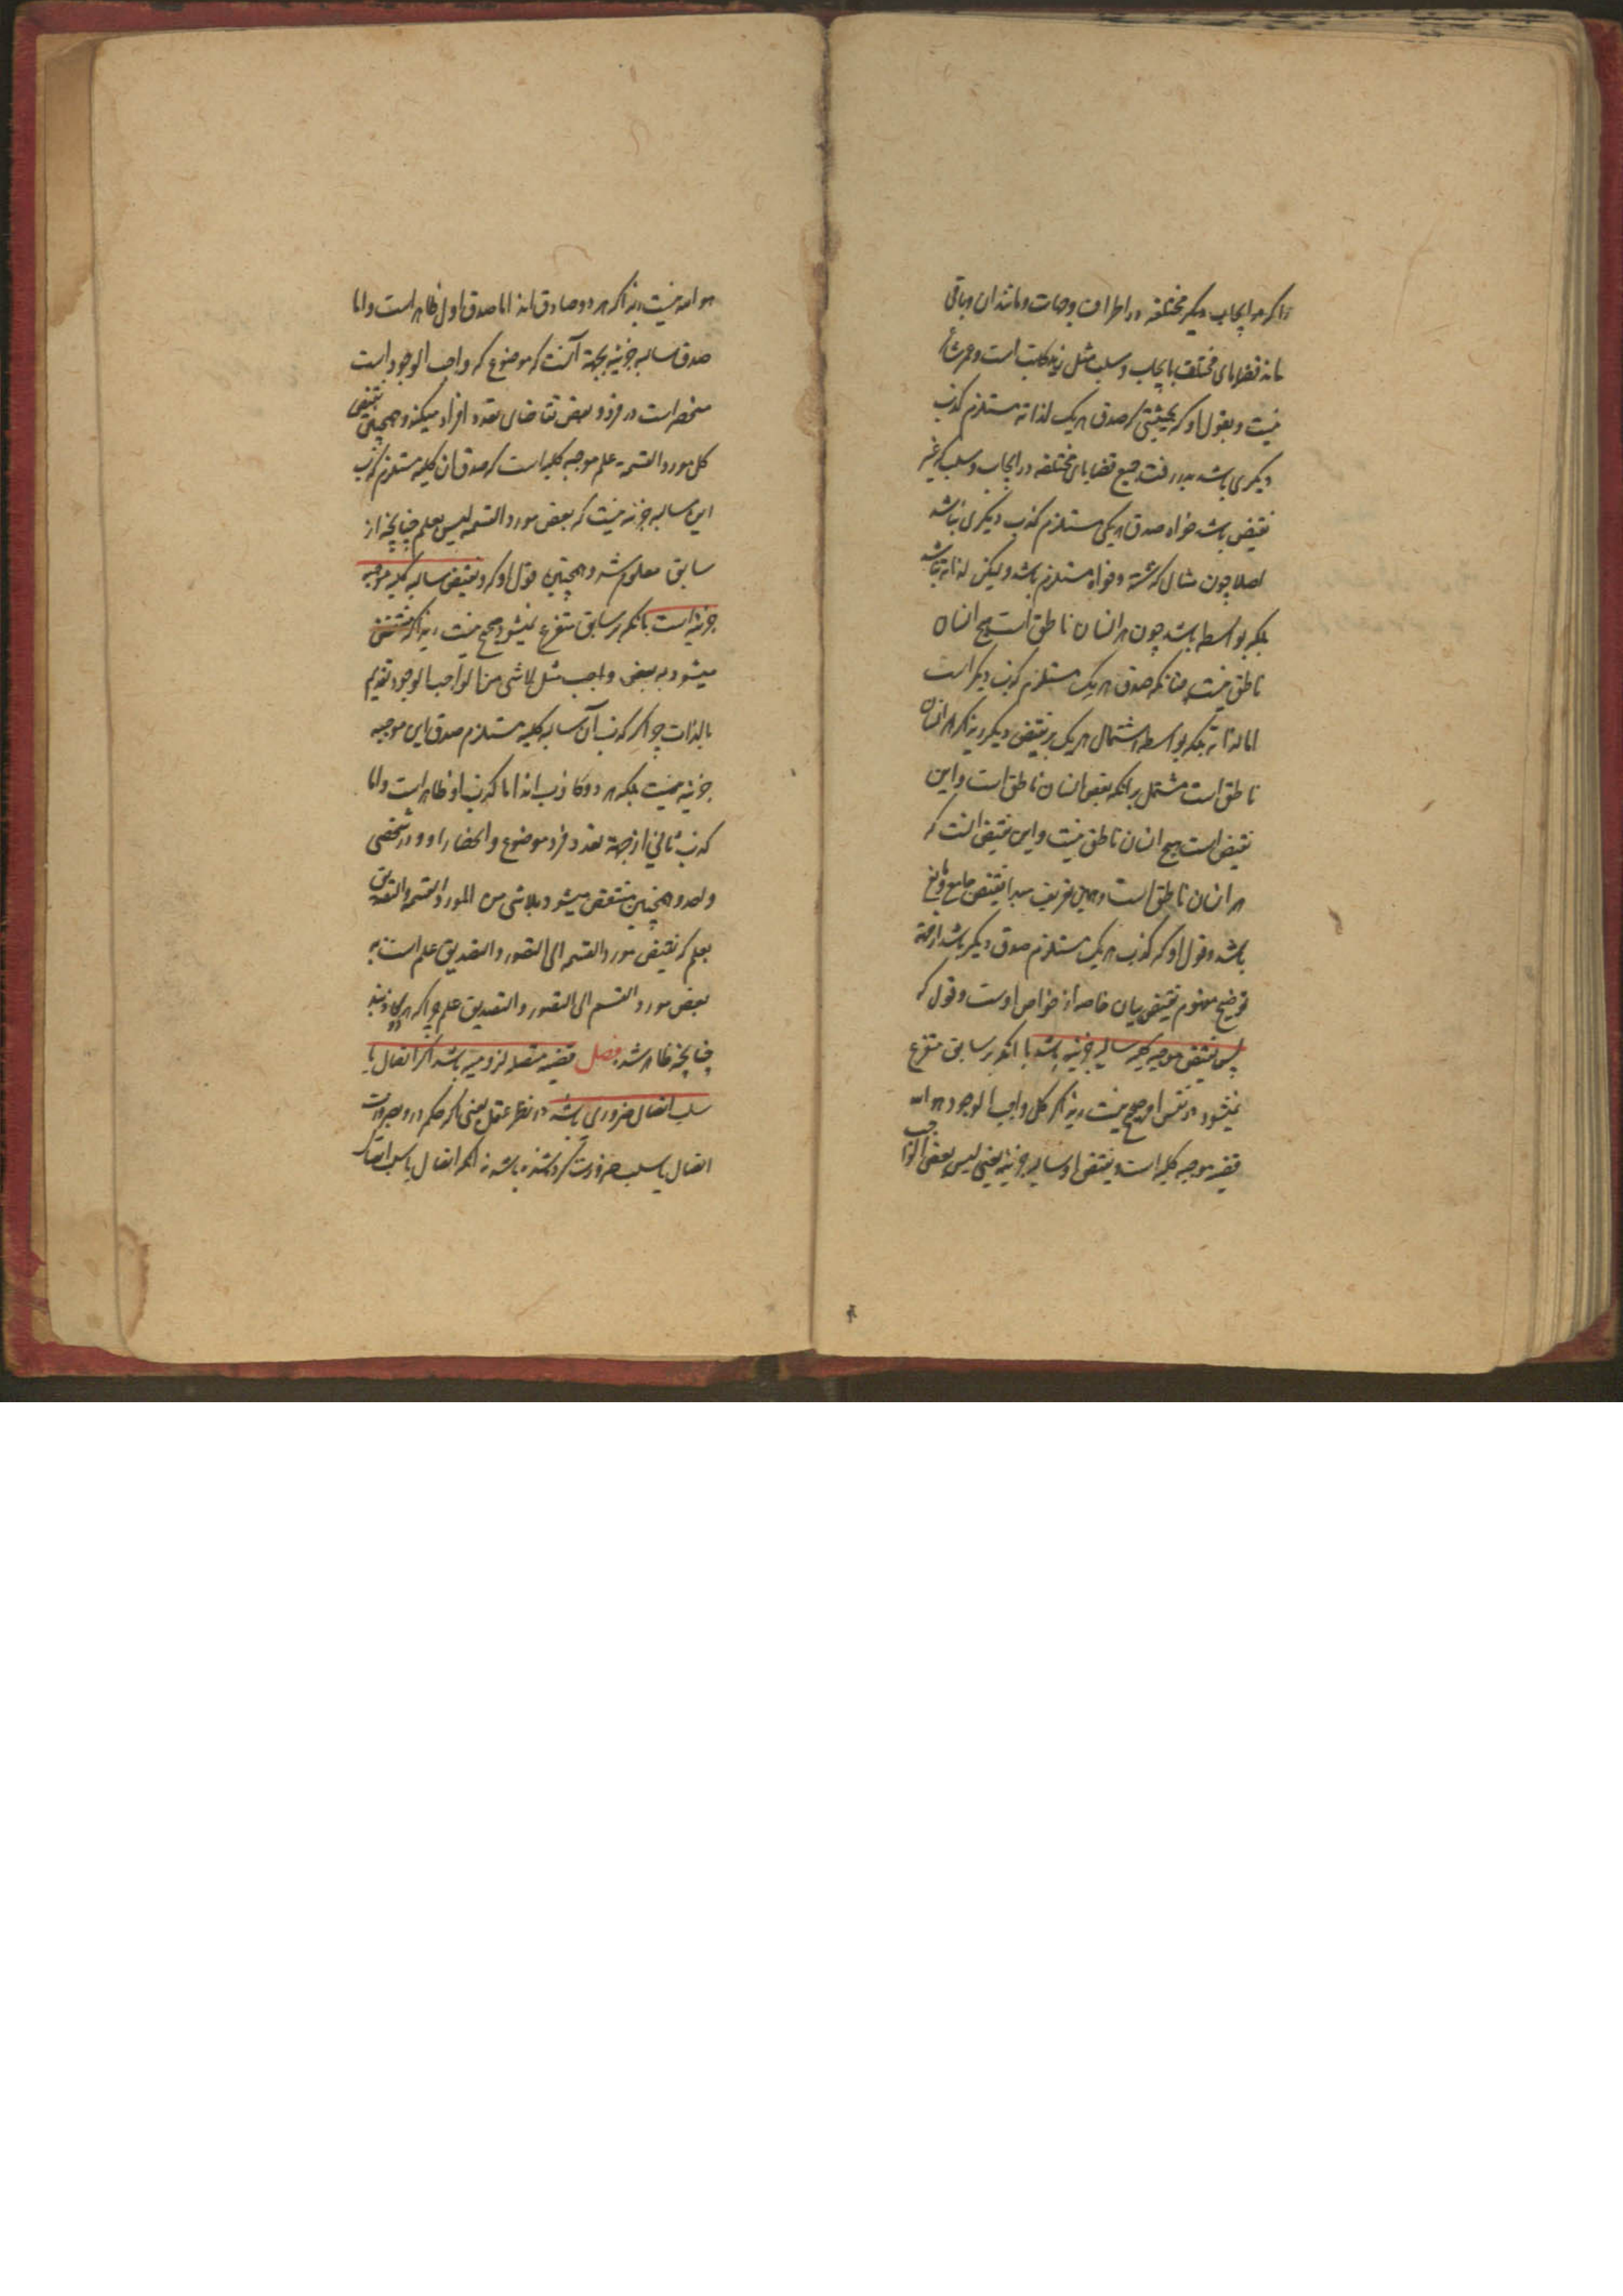 و ایجاب دیگر مختلفه در اطراف و جهات و مانند ان و باقی
ماند قضایای مختلف بایجاب و سلب مثل زید کاتب است و عمر شاعر
نیست و بقول او که بحیثیتی که صدق هر یک لذاته مستلزم کذب
دیگری باشد بدر رفت جمیع قضایای مختلفه در ایجاب و سلب که غیر
نقیض باشد خواه صدق هر یکی مستلزم کذب دیگری نباشد
اصلا چون مثال گذشته و خواه مستلزم باشد ولیکن لذاته نباشد
بلکه بواسطه باشد چون هر انسان ناطق است هیچ انسان
ناطق نیست چنانکه صدق هر یک مستلزم کذب دیگر است
اما لذاته بلکه بواسطه اشتمال هر یک بر نقیض دیگر زیراکه هر انسان
ناطق است مشتمل بر انکه بعض انسان ناطق است و این
نقیض است هیچ انسان ناطق نیست و این نقیض انست که
هر انسان ناطق است و همین تعریف نقیض جامع و مانع
باشد و قول او که کذب هر یک مستلزم صدق دیگر باشد از جهة
توضیح مفهوم نقیض بیان خاصه از خواص اوست و قول که
پس نقیض موجبه کلیه سالبه جزئیه باشد با انکه بر سابق متفرع
نمیشود در نفس امر صحیح نیست زیراکه کل واجب الوجود هو الله
قضیه موجبه کلیه است و نقیض او سالبه جزئیه یعنی لیس بعض الواجب
هو الله نیست زیراکه هر دو صادق اند اما صدق اول ظاهر است و اما
صدق سالبه جزئیه بجهة آنست که موضوع که واجب الوجود است
منحصر است در فرد و بعض تقاضای تعدد افراد میکند و همچنین نقیض
کل مورد القسمة علم موجبه کلیه است که صدق ان کلیه مستلزم کذب
این سالبه جزئیه نیست که بعض مورد القسمه لیس بعلم چنانچه از
سابق معلوم شد و همچنین قول او که و نقیض سالبه کلیه موجبه
جزئیه است با انکه بر سابق متفرع نمیشود صحیح نیست زیراکه منتقض
میشود به بعض واجب مثل لاشی من الواجب الوجود بقدیم
بالذات چه اگر کذب آن سالبه کلیه مستلزم صدق این موجبه
جزئیه نیست بلکه هر دو کاذب اند اما کذب او ظاهر است و اما
کذب ثانی از جهة تعدد فرد موضوع و انحصار او در شخصی
واحد و همچنین منتقض میشود بلاشی من المورد القسمه و التصدیق
بعلم که نقیض مورد القسمه الی التصور و التصدیق علم است به
بعض مورد القسم الی التصور و التصدیق علم چراکه هر دو کاذبند
چنانچه ظاهر شد فصل قضیه متصله لزومیه باشد اگر اتصال یا
سلب اتصال ضروری باشد در نظر عقل یعنی اگر حکم در و بضرورت
اتصال یا سلب ضرورت کرده شده باشد نه انکه اتصال یا سلب اتصال